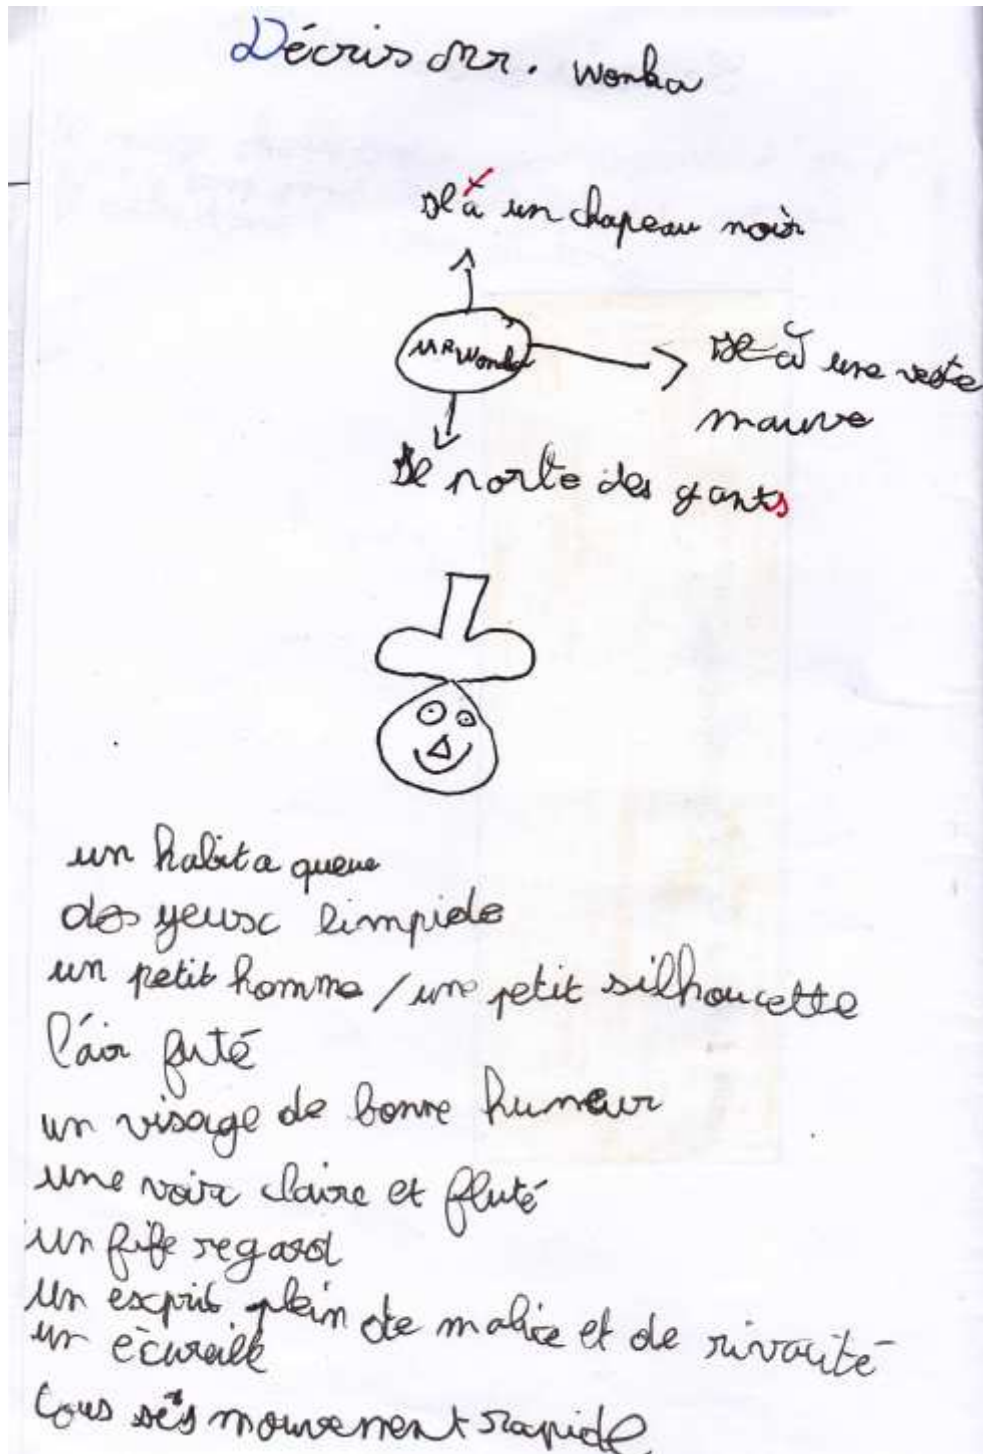 Décris Mr. Wonka
Il à un chapeau noir
MR Wonka
Il à une veste
mauve
Il porte des gants
un habit a queue
des yeux limpide
un petit homme / une petit silhoucette
l'air futé
un visage de bonne humeur
une voix claire et fluté
un fife regard
un esprit plein de malice et de vivacité
un écureille
tous sés mouvement rapide